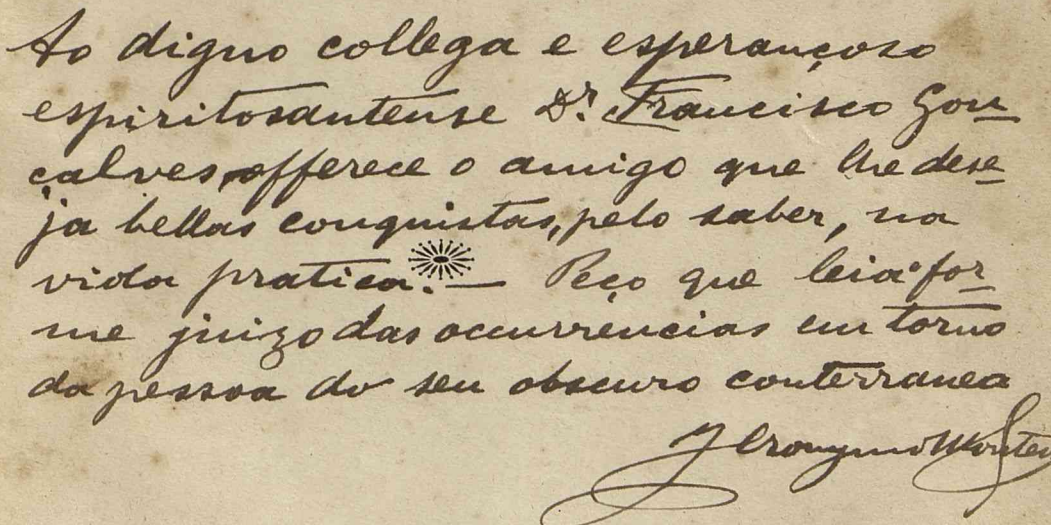 Ao digno collega e esperançoso
espiritosantense Dr. Francisco Gon
çalves, offerece o amigo que lhe dese
ja bellas conquistas, pelo saber, na
vida pratica. — Peço que leia e for
me juizo das occurrencias em torno
da pessoa do seu obscuro conterraneo
Jeronymo Monteiro